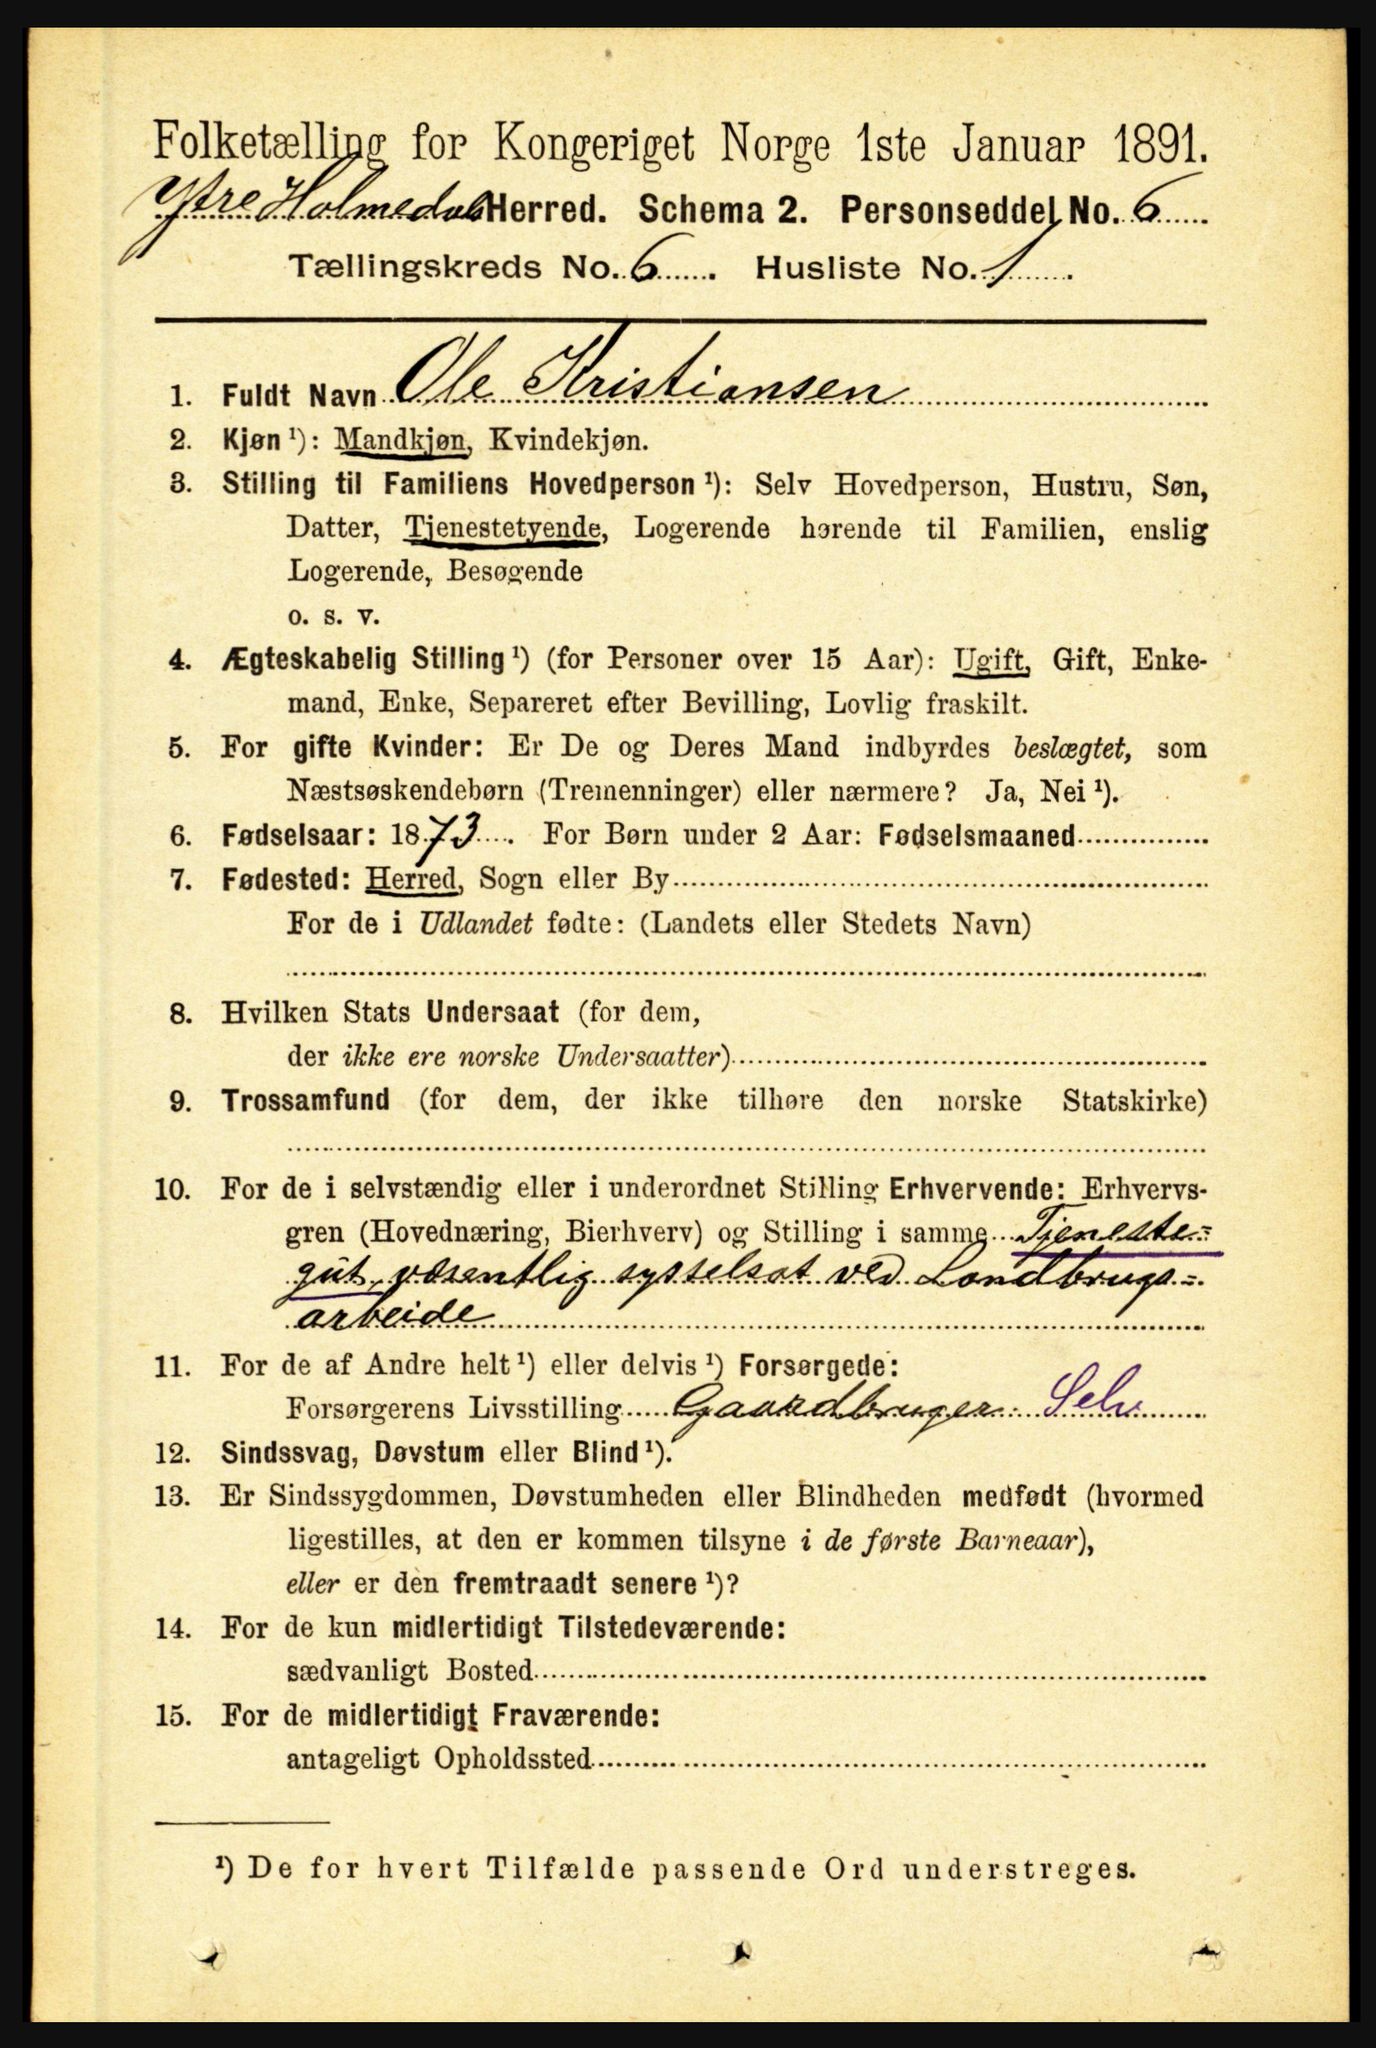 Folketælling for Kongeriget Norge 1ste Januar 1891.
Ytre Holmedal Herred. Schema 2. Personseddel No. 6
Tællingskreds No. 6. Husliste No. 1.
1. Fuldt Navn Ole Kristiansen
2. Kjøn ¹): Mandkjøn, Kvindekjøn.
3. Stilling til Familiens Hovedperson ¹): Selv Hovedperson, Hustru, Søn,
Datter, Tjenestetyende, Logerende hørende til Familien, enslig
Logerende, Besøgende
o. s. v.
4. Ægteskabelig Stilling ¹) (for Personer over 15 Aar): Ugift, Gift, Enke-
mand, Enke, Separeret efter Bevilling, Lovlig fraskilt.
5. For gifte Kvinder: Er De og Deres Mand indbyrdes beslægtet, som
Næstsøskendebørn (Tremenninger) eller nærmere? Ja, Nei ¹).
6. Fødselsaar: 1873. For Børn under 2 Aar: Fødselsmaaned
7. Fødested: Herred, Sogn eller By
For de i Udlandet fødte: (Landets eller Stedets Navn)
8. Hvilken Stats Undersaat (for dem,
der ikke ere norske Undersaatter)
9. Trossamfund (for dem, der ikke tilhøre den norske Statskirke)
10. For de i selvstændig eller i underordnet Stilling Erhvervende: Erhvervs-
gren (Hovednæring, Bierhverv) og Stilling i samme Tjeneste=
gut, væsentlig sysselsat ved Landbrugs=
arbeide
11. For de af Andre helt ¹) eller delvis ¹) Forsørgede:
Forsørgerens Livsstilling Gaardbruger Selv
12. Sindssvag, Døvstum eller Blind ¹).
13. Er Sindssygdommen, Døvstumheden eller Blindheden medfødt (hvormed
ligestilles, at den er kommen tilsyne i de første Barneaar),
eller er den fremtraadt senere ¹)?
14. For de kun midlertidigt Tilstedeværende:
sædvanligt Bosted
15. For de midlertidigt Fraværende:
antageligt Opholdssted
¹) De for hvert Tilfælde passende Ord understreges.